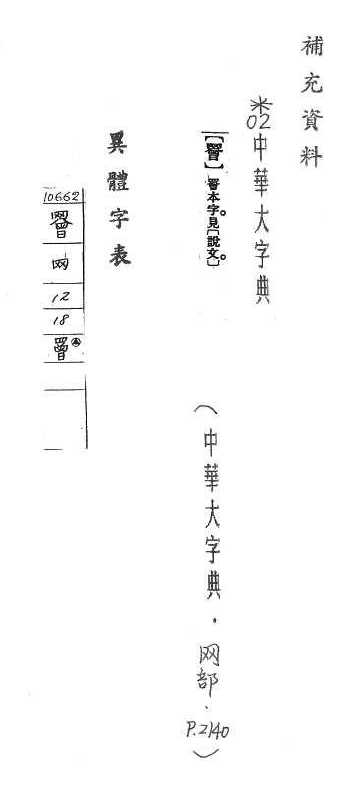 補充資料
※02中華大字典
【】罾本字。見〔說文〕。
（中華大字典．网部．P.2140）
異體字表
10662
网
12
18
罾